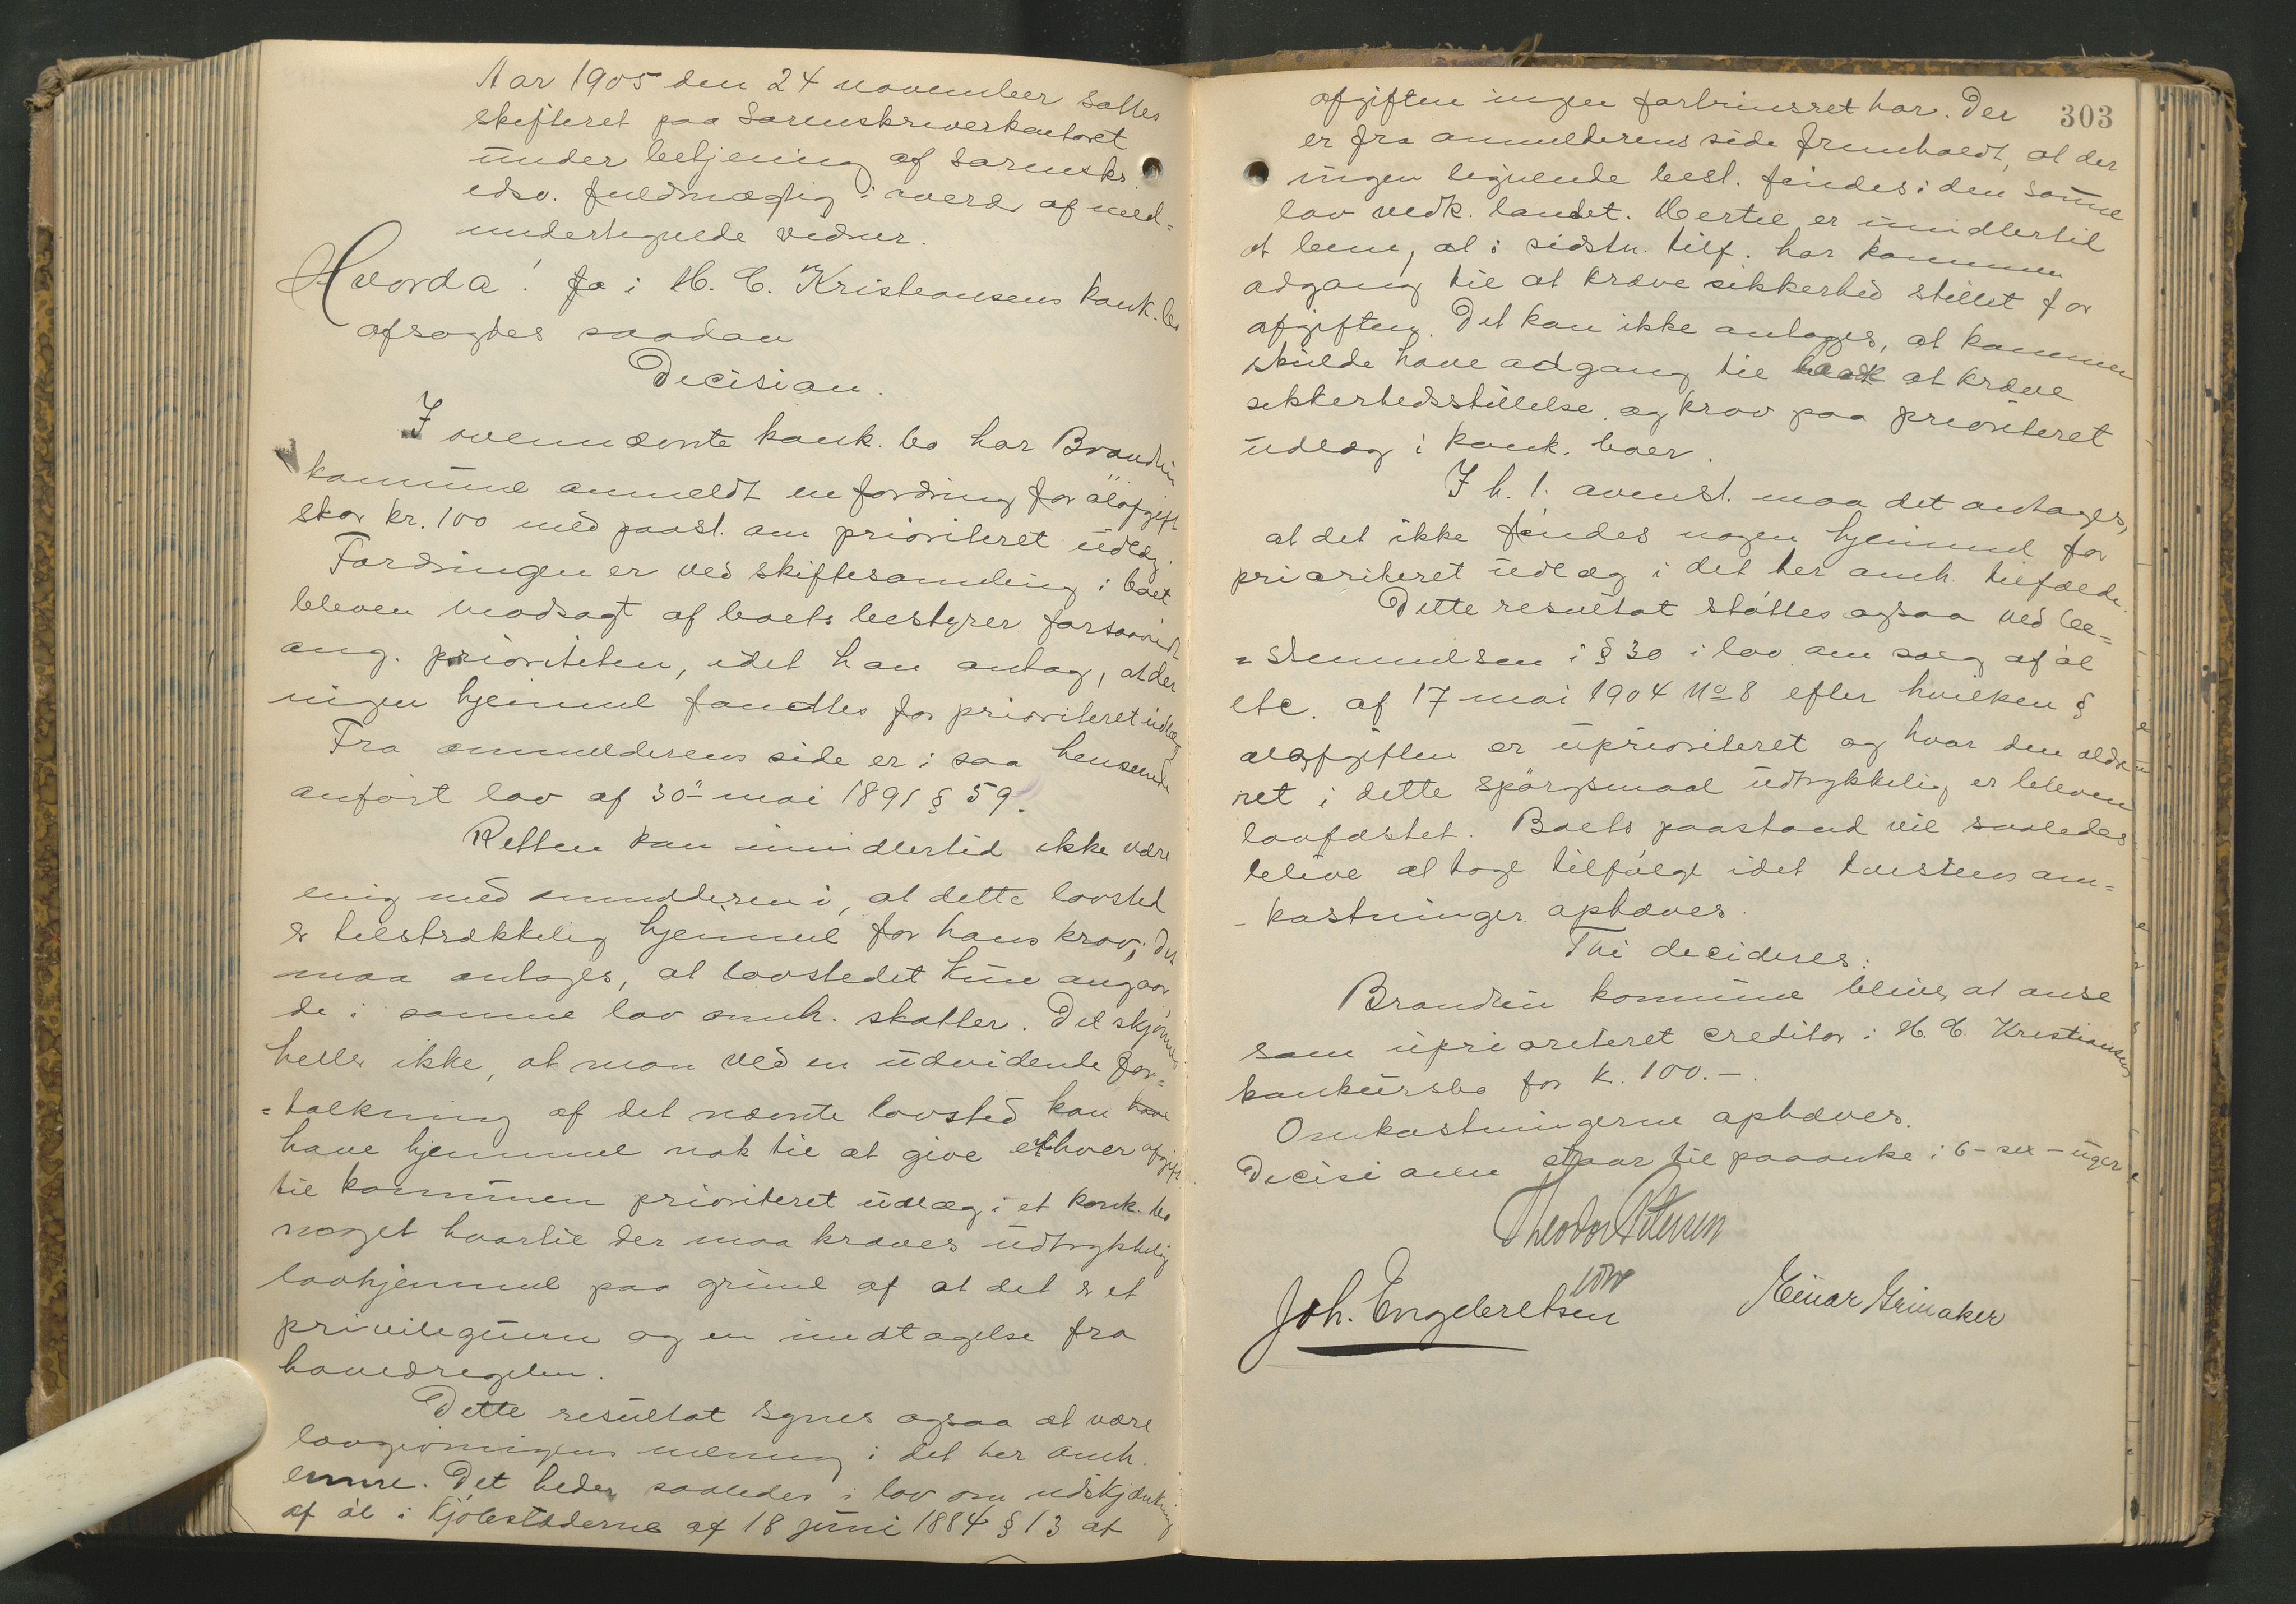 Aar 1905 den 24 november sattes
skifteret paa Sorenskriverkontoret
under betjening af Sorenskr.
edsv. fuldmægtig i overv. af med-
undertegnede vidner.
Hvorda! fo i H. C. Kristiansens konk.bo
afsagdes saadan
Decision.
I ovennævnte konk. bo har Brandbu
kommune anmeldt en fordring for ølafgift
stor kr. 100 med paast. om prioriteret udlæg.
Fordringen er ved skiftesamling i boet
bleven modsagt af boets bestyrer forsaavidt
ang. prioriteten, idet han antog, at der
ingen hjemmel fandtes for prioriteret udlæg
Fra anmelderens side er i saa henseende
anført lov af 30te mai 1891 § 59.
Retten kan imidlertid ikke være
enig med anmelderen i, at dette lovsted
er tilstrækkelig hjemmel for hans krav; det
maa antages, at lovstedet kun angaar
de i samme lov omh. skatter. Det skjønnes
heller ikke, at man ved en udvidende for-
=tolkning af det nævnte lovsted kan have
have hjemmel nok til at give enhver afgift
til kommunen prioriteret udlæg i et konk. bo
noget hvortil der maa kræves udtrykkelig
lovhjemmel paa grund af at det er et
privilegium og en undtagelse fra
hovedregelen.
Dette resultat synes ogsaa at være
lovgivningens mening i det her omh.
emne. Det heder saaledes i lov om udskjænkning
af øl i Kjøbstæderne af 18 juni 1884 § 13 at
303
afgiften ingen fortrinsret har. Der
er fra anmelderens side fremholdt, at der
ingen lignende best. findes i den samme
lov vedk. landet. Hertil er imidlertid
at bem, at i sidstn. tilf. har kommunen
adgang til at kræve sikkerhed stillet for
afgiften. Det kan ikke antages, at kommunen
skulde have adgang til at kræve
sikkerhedsstillelse og krav paa prioriteret
udlæg i konk. boer.
I h. t. ovenst. maa det antages,
at det ikke findes nogen hjemmel for
prioriteret udlæg i det her omh. tilfælde.
Dette resultat støttes ogsaa ved be-
=stemmelsen i § 30 i lov om salg af øl
etc. af 17 mai 1904 No 8 efter hvilken §
ølafgiften er uprioriteret og hvor den ældre
ret i dette spørgsmaal udtrykkelig er bleven
lovfæstet. Boets paastand vil saaledes
blive at tage tilfølge idet tvistens om-
-kostninger ophæves.
Thi decideres:
Brandbu kommune bliver at anse
som uprioriteret creditor i H. C. Kristiansens
konkursbo for k. 100.-.
Omkostningerne ophæves.
Decisionen staar til paaanke i 6 - sex - uger
Theodor Petersen
Joh. Engebretsen
Einar Grinaker